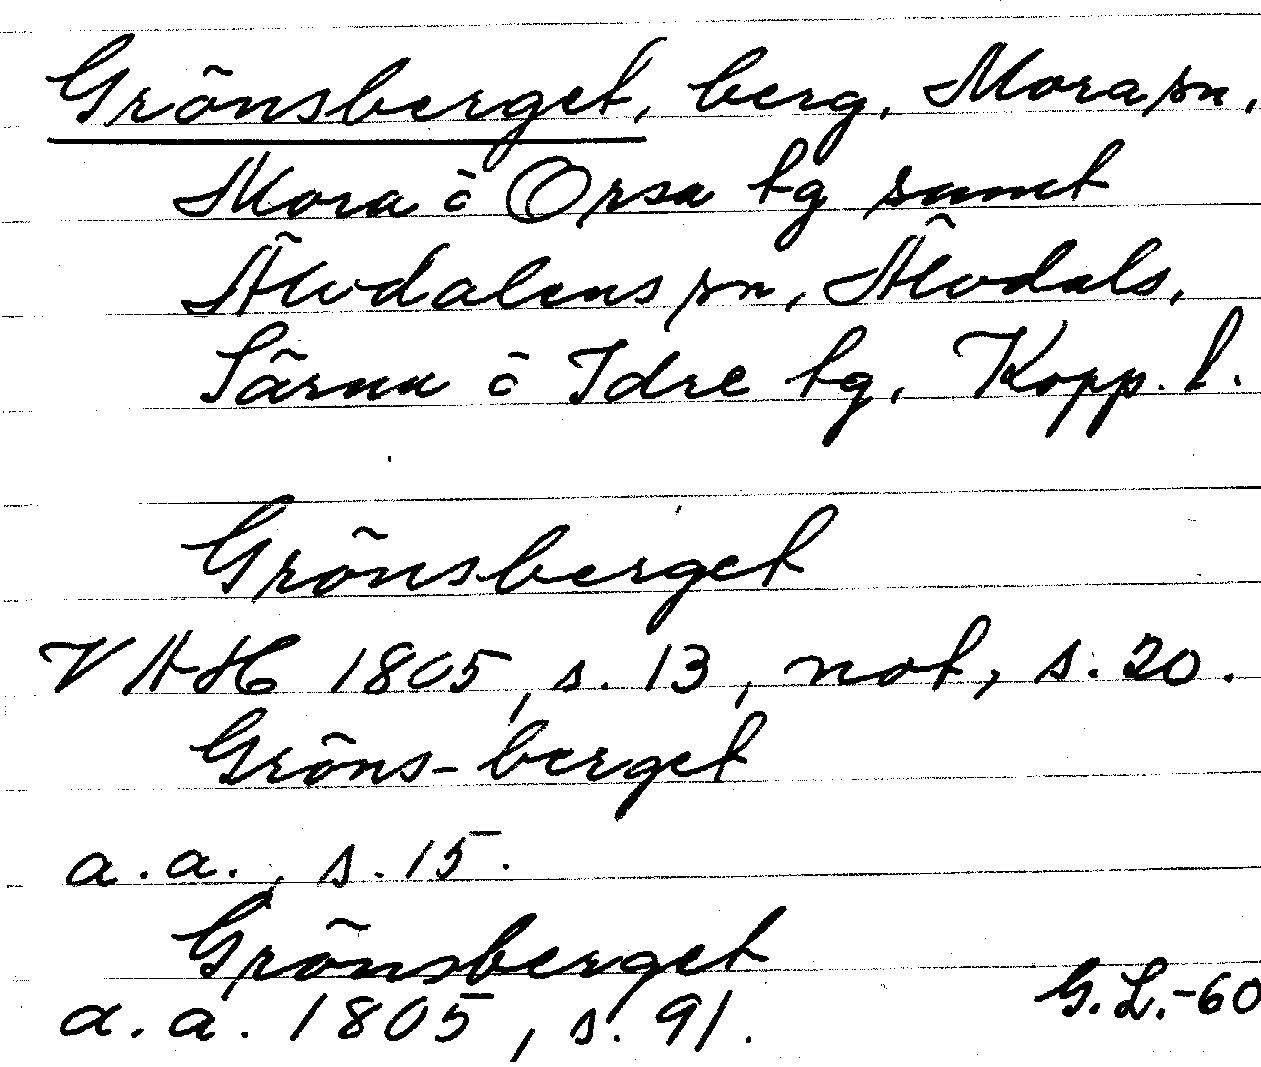 Grönsberget, berg, Mora sn,
Mora ö Orsa tg samt
Älvdalens sn, Älvdals,
Särna ö Idre tg, Kopp. l.
Grönsberget
VAH 1805, s. 13, not, s. 20.
Gröns-berget
a.a., s. 15.
Grönsberget
a.a. 1805, s. 91.
G.L.-60